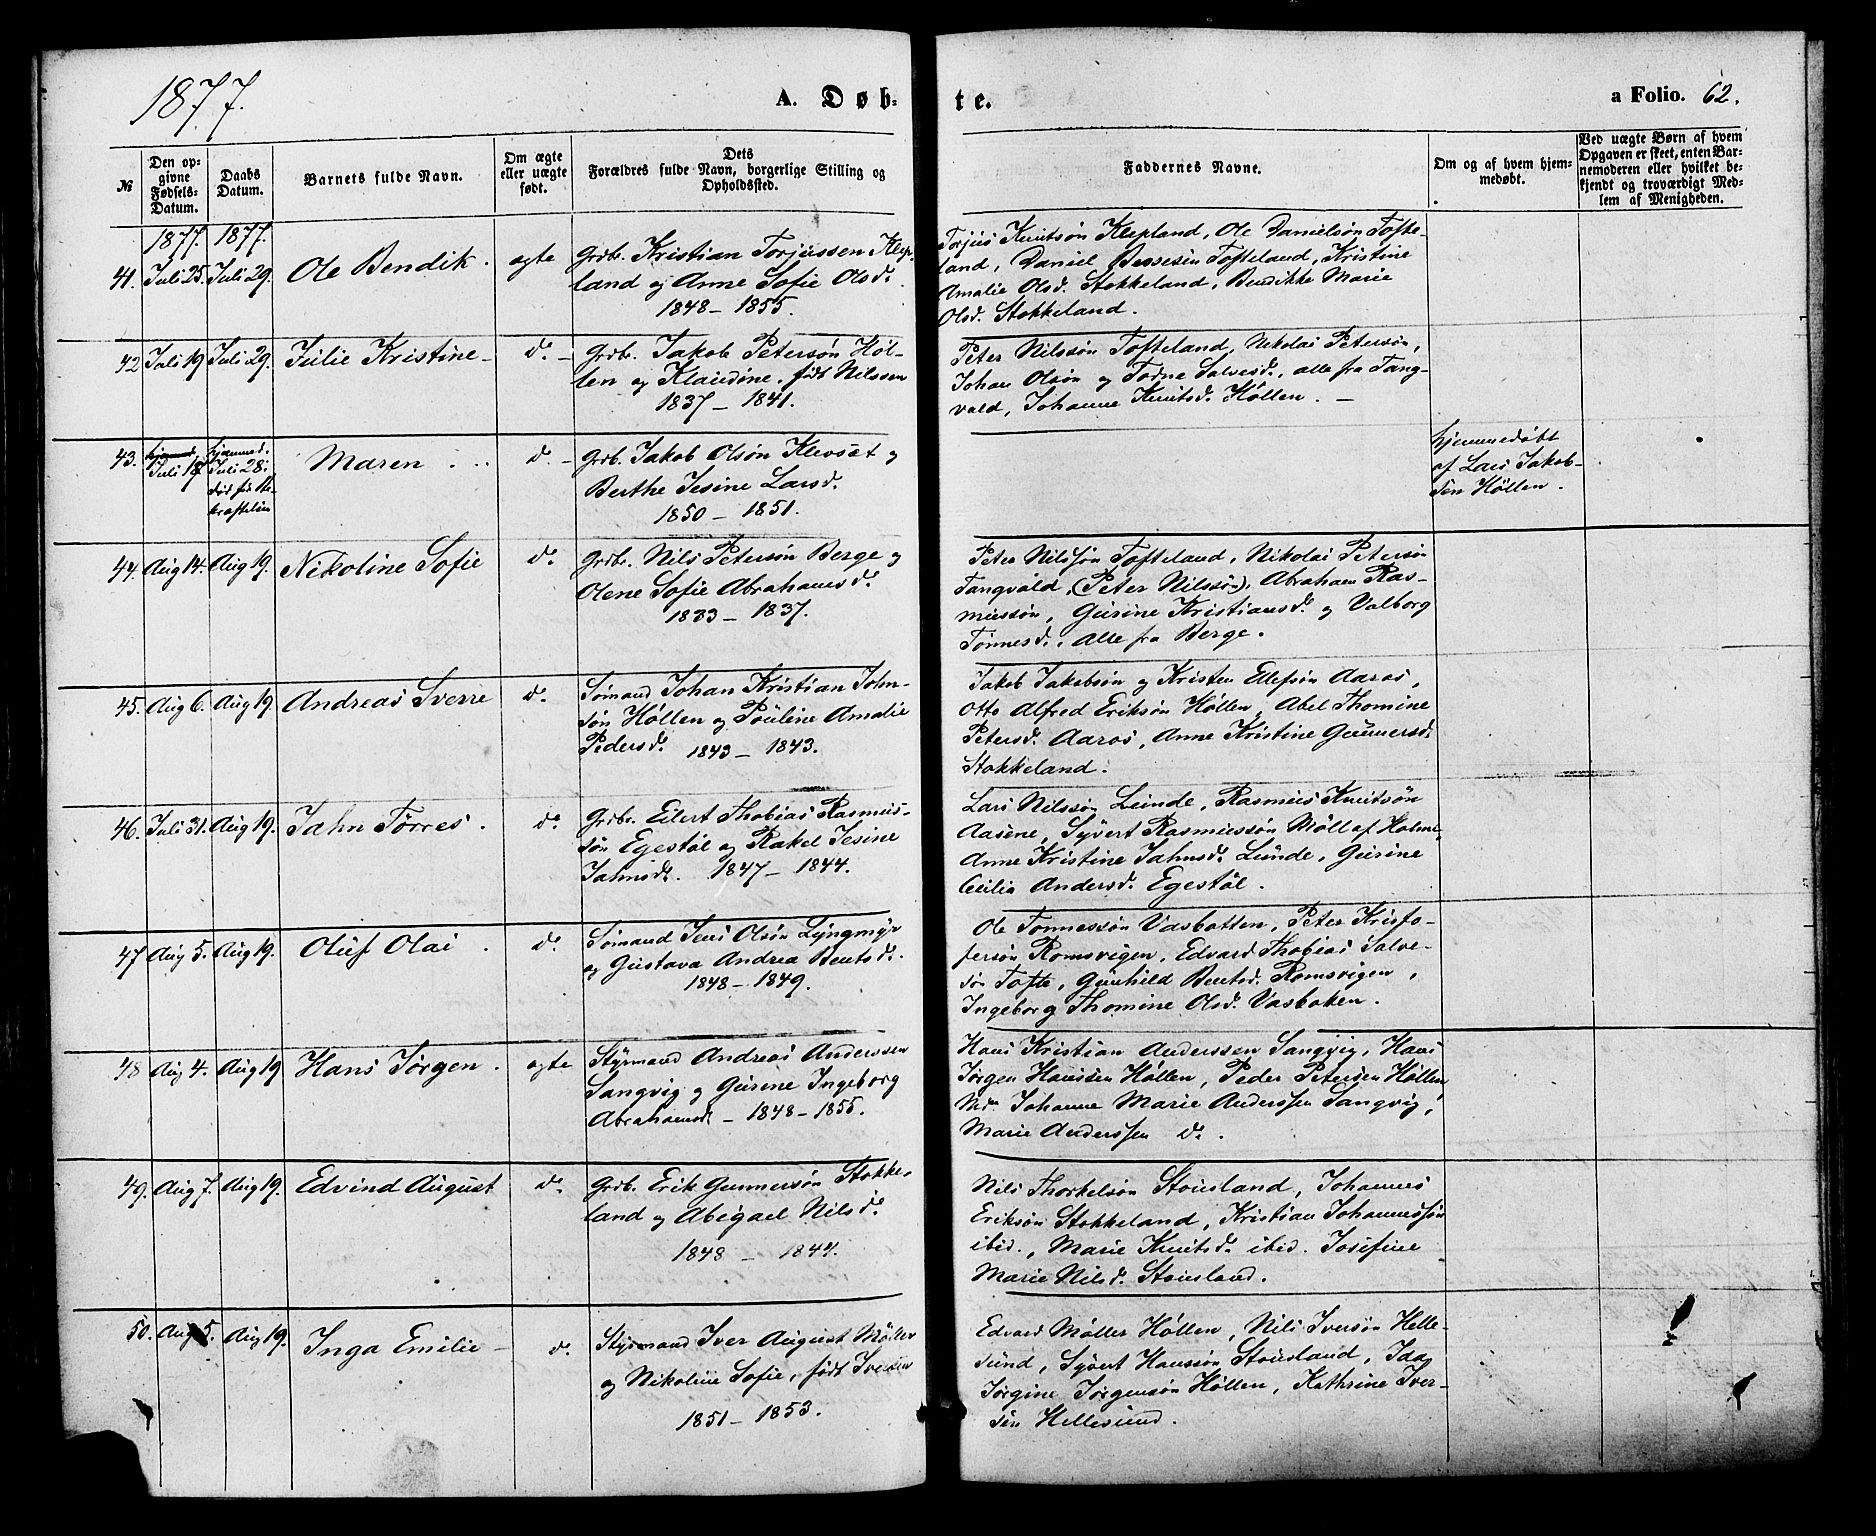 1877.
A. Døb-
te.
a Folio. 62.
№
Den op-
givne
Fødsels-
Datum.
Daabs
Datum.
Barnets fulde Navn.
Om ægte
eller uægte
født.
Dets
Forældres fulde Navn, borgerlige Stilling og
Opholdssted.
Faddernes Navne.
Om og af hvem hjem-
medøbt.
Ved uægte Børn af hvem
Opgaven er skeet, enten Bar-
nemoderen eller hvilket be-
kjendt og troværdigt Med-
lem af Menigheden.
1877. 1877.
41. Juli 25. Juli 29. Ole Bendik. ægte
Grdb. Kristian Torjussen Klep-
land og Anne Sofie Olsd.
1848 - 1855.
Torjus Knutsøn Klepland, Ole Danielsøn Tofte-
land, Daniel Tofteland, Kristine
Amalie Olsd. Stokkeland, Bendikke Marie
Olsd. Stokkeland.
42 Juli 19 Juli 29. Julie Kristine - d. -
Grdb. Jakob Petersøn Høl-
len og Klaudine, født Nilssen
1837 - 1841.
Peter Nilssøn Tofteland, Nikolai Petersøn,
Johan Olsøn og Todne Salvesd., alle fra Tang-
vald, Johanne Knutsd. Høllen. -
43. Juli 18 hjemmed.
Juli 28;
død før Be-
kræftelsen
Maren . .. d. -
Grdb. Jakob Olsøn Klevset og
Berthe Jesine Larsd.
1850 - 1851.
hjemmedøbt
af Lars Jakob-
sen Høllen.
44. Aug 14. Aug 19. Nikoline Sofie d.
Grdb. Nils Petersøn Berge og
Olene Sofie Abrahamsd.
1833 - 1837.
Peter Nilssøn Tofteland, Nikolai Petersøn
Tangvald, (Peter Nilssøn), Abraham Ras-
mussøn, Gurine Kristiansd. og Valborg
Tønnesd., alle fra Berge.
45. Aug 6. Aug 19. Andreas Sverre d.
Sømand Johan Kristian John-
søn Høllen og Pouline Amalie
Pedersd. 1843 - 1843.
Jakob Jakobsøn og Kristen Ellefsøn Aaros,
Otto Alfred Eriksøn Høllen, Abel Thomine
Petersd. Aaros, Anne Kristine Gunnersd.
Stokkeland.
46. Juli 31. Aug 19. Jahn Tørres. d.
Grdb. Eilert Thobias Rasmus-
søn Egestøl og Rakel Jesine
Jahnsd. 1847 - 1844.
Lars Nilssøn Lunde, Rasmus Knutsøn
Aasene, Syvert Rasmussøn Møll af Holme,
Anne Kristine Jahnsd. Lunde, Gurine
Cecilia Andersd. Egestøl.
47 Aug 5. Aug 19. Oluf Olai . d.
Sømand Jens Olsøn Lyngmyr
og Gustava Andrea Bentsd.
1848 - 1849.
Ole Tønnessøn Vasbotten, Peter Kristo-
fersøn Romsvigen, Edvard Thobias Salve-
søn Tofte, Gunhild Bentsd. Romsvigen,
Ingeborg Thomine Olsd. Vasbotten.
48 Aug 4. Aug 19 Hans Jørgen. ægte
Styrmand Andreas Anderssen
Langvig og Gurine Ingeborg
Abrahamsd. - 1848 - 1855.
Hans Kristian Anderssen Langvig, Hans
Jørgen Hanssen Høllen, Peder Petersen Høllen,
Johanne Marie Anderssen Langvig,
Marie Anderssen d.
49. Aug 7. Aug 19. Edvind August d.
Grdb. Erik Gunnersøn Stokke-
land og Abigael Nilsd.
1848 - 1844.
Nils Thorkelsøn Stousland, Johannes
Eriksøn Stokkeland, Kristian Johannessøn
ibid., Marie Knutsd. ibid. Josefine
Marie Nilsd. Stousland.
50. Aug 5. Aug 19. Inga Emilie - d.
Styrmand Iver August Møller
og Nikoline Sofie, født Iversen
1851 - 1853.
Edvard Møller Høllen, Nils Iversøn Helle-
sund, Syvert Hanssøn Stousland, Ida
Jørgine Jørgensøn Høllen, Kathrine Iver-
sen Hellesund.